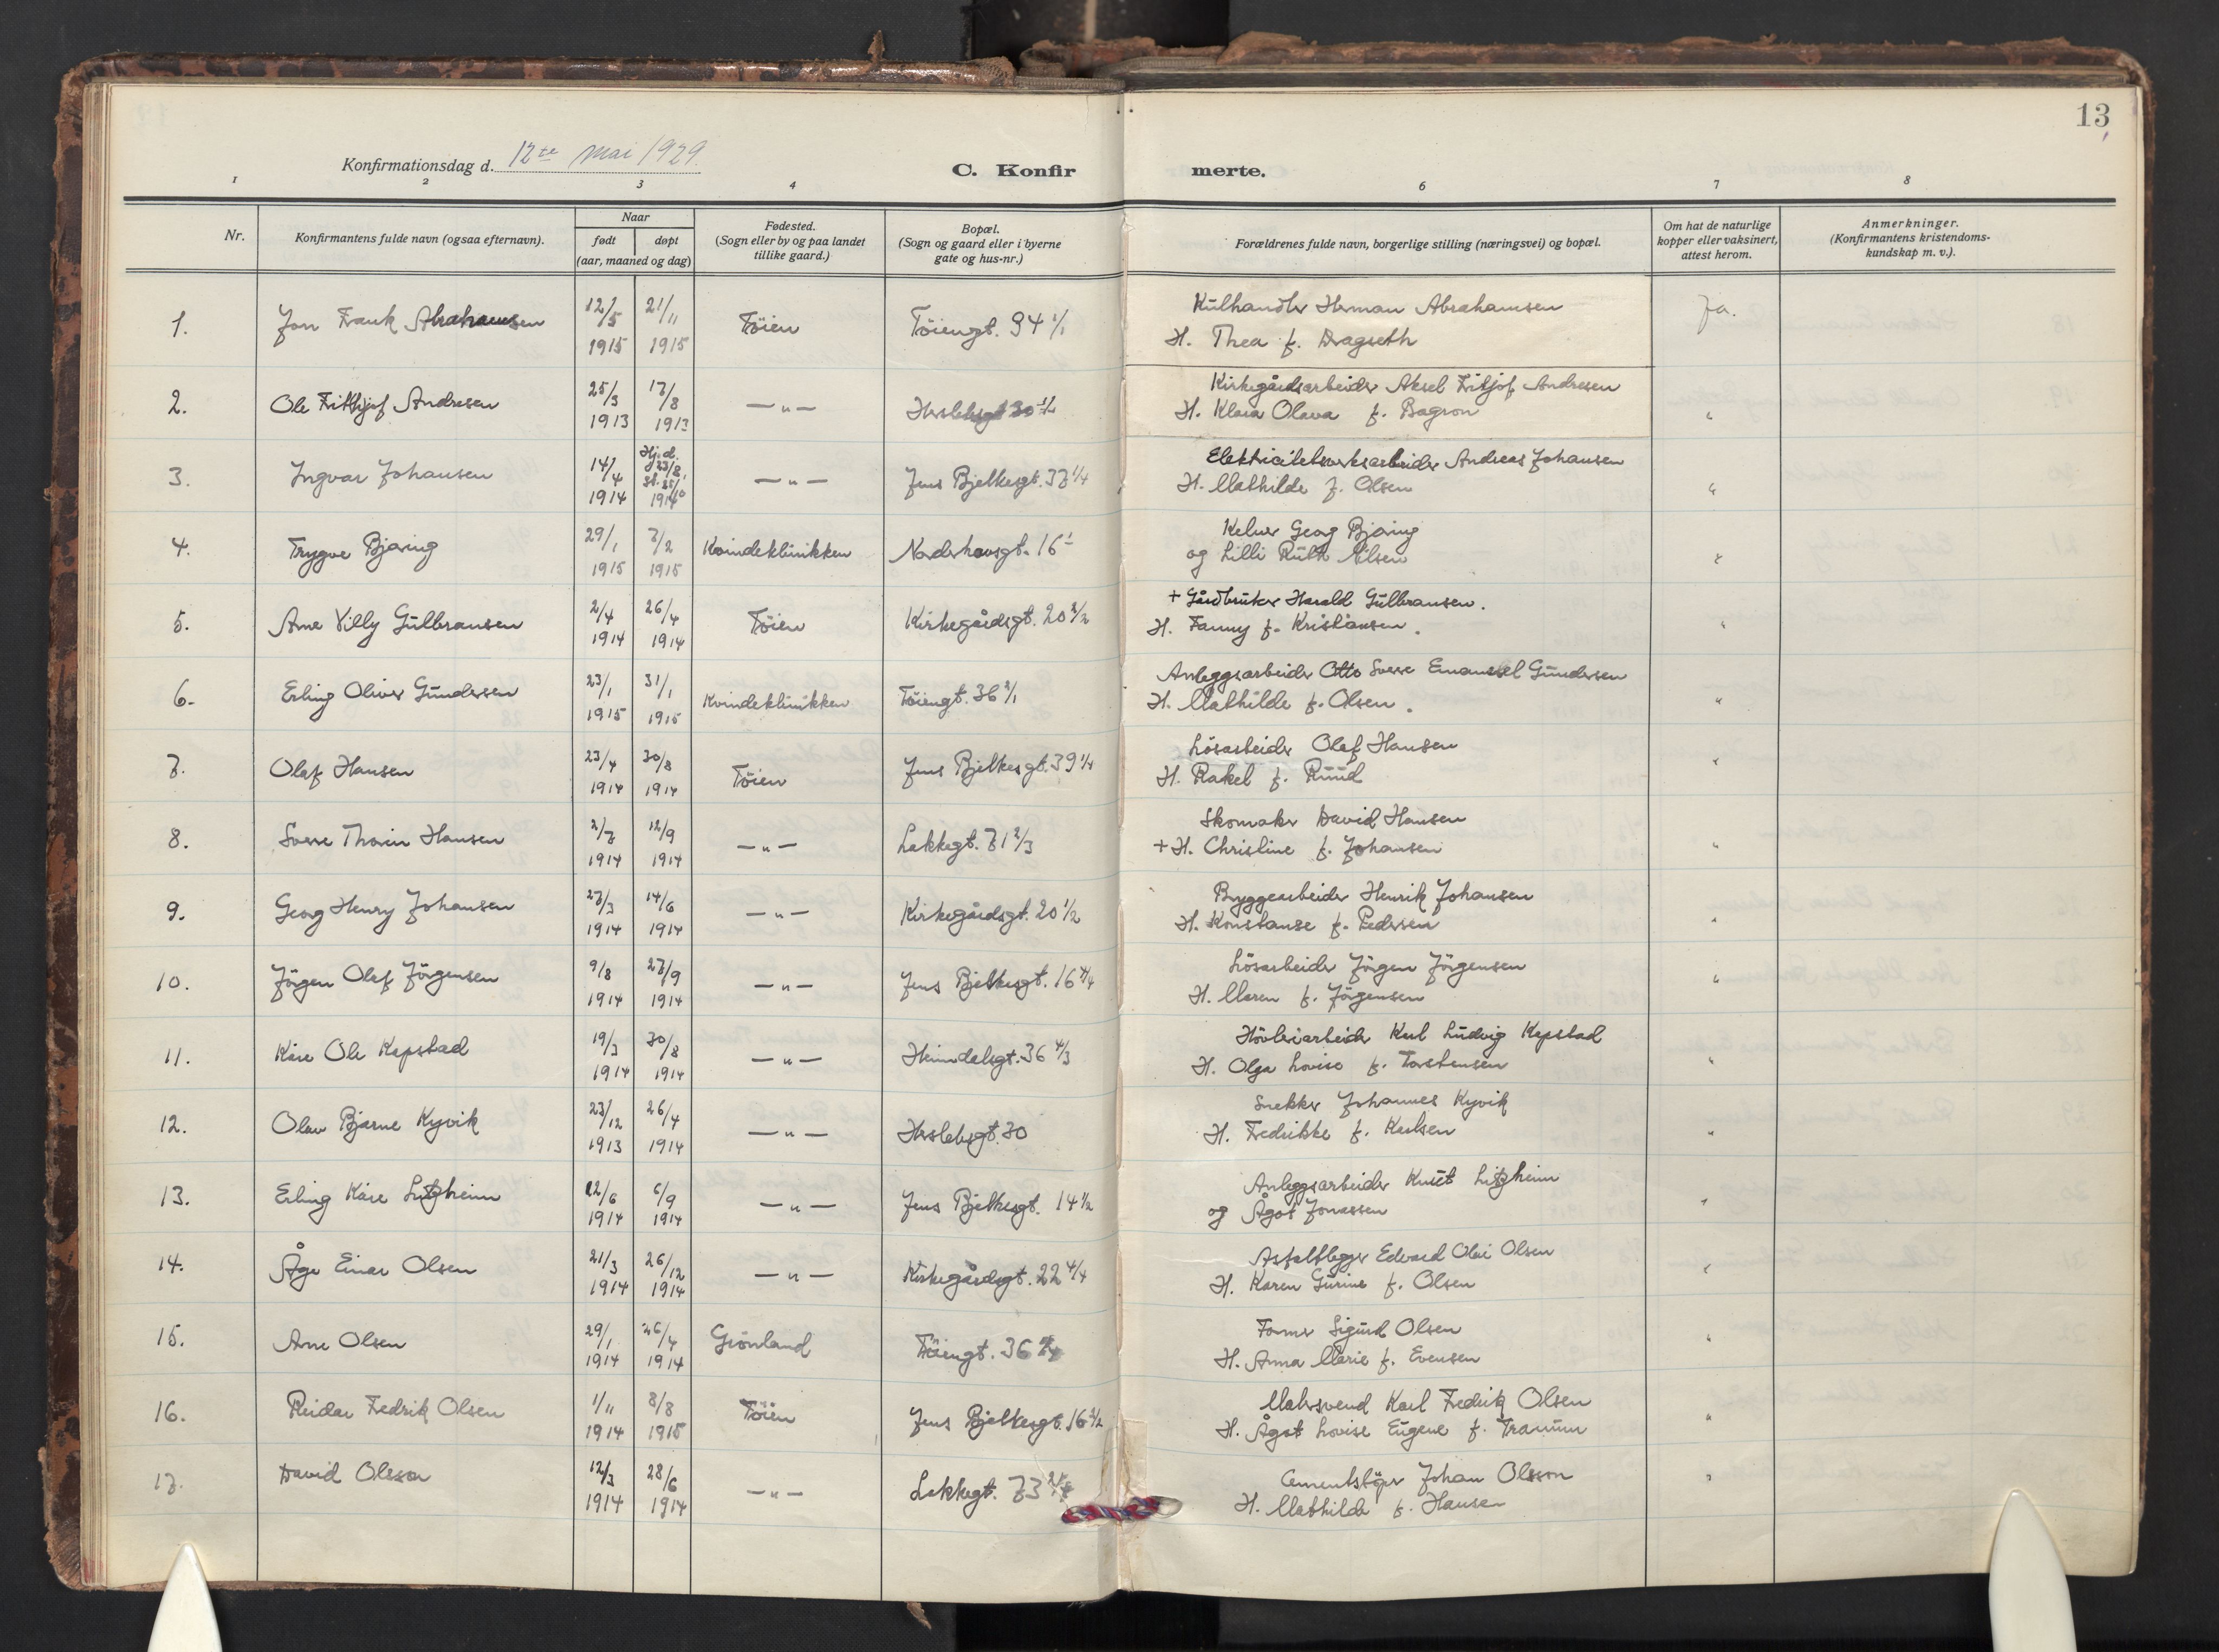 13
Konfirmationsdag d. 12te Mai 1929. C. Konfirmerte.
1 2 3 4 6 7 8
Nr. Konfirmantens fulde navn (ogsaa efternavn). Naar født døpt (aar, maaned og dag) Fødested. (Sogn eller by og paa landet tillike gaard.) Bopæl. (Sogn og gaard eller i byerne gate og hus-nr.) Forældrenes fulde navn, borgerlige stilling (næringsvei) og bopæl. Om hat de naturlige kopper eller vaksinert, attest herom. Anmerkninger. (Konfirmantens kristendoms-kundskap m. v.).
1. Jon Frank Abrahamsen 12/5 1915 21/11 1915 Töien Töiengt. 94 1/1 Kulhandler Herman Abrahamsen Ja.
H. Thea f. Dragseth
2. Ole Frithjof Andresen 25/3 1913 17/8 1913 — „ — Herslebsgt 30 1/2 Kirkegårdsarbeider Aksel Fritjof Andresen
H. Klara Olava f. Bagron „
3. Ingvar Johansen 14/4 1914 Hj.d. 23/8 St. 25/10 1914 — „ — Jens Bjelkesgt. 37 1/4 Elektricitetsverksarbeider Andreas Johansen
H. Mathilde f. Olsen „
4. Trygve Bjøring 29/1 1915 7/2 1915 Kvindeklinikken Norderhovsgt. 16 1 Kelner Georg Bjøring
og Lilli Ruth Nilsen „
5. Arne Villy Gulbransen 2/4 1914 26/4 1914 Töien Kirkegårdsgt. 20 2/2 + Gårdbruker Harald Gulbransen.
H. Fanny f. Kristiansen. „
6. Erling Oliver Gundersen 23/1 1915 31/1 1915 Kvindeklinikken Töiengt. 36 2/1 Anleggsarbeider Otto Sverre Emanuel Gundersen
H. Mathilde f. Olsen. „
7. Olaf Hansen 23/4 1914 30/8 1914 Töien Jens Bjelkesgt. 39 1/4 Lösarbeider Olaf Hansen
H. Rakel f. Ruud „
8. Sverre Thorin Hansen 2/7 1914 12/9 1914 — „ — Lakkegt. 71 2/3 Skomaker David Hansen
+ H. Christine f. Johansen „
9. Georg Henry Johansen 27/3 1914 14/6 1914 — „ — Kirkegårdsgt. 20 1/2 Bryggearbeider Henrik Johansen
H. Konstanse f. Pedersen „
10. Jörgen Olaf Jörgensen 9/8 1914 27/9 1914 — „ — Jens Bjelkesgt. 16 4/4 Lösarbeider Jörgen Jörgensen
H. Maren f. Jörgensen „
11. Kåre Ole Kapstad 19/3 1914 30/8 1914 — „ — Heimdalsgt. 36 4/3 Hövleriarbeider Karl Ludvig Kapstad
H. Olga Lovise f. Torstensen „
12. Olav Bjarne Kyvik 23/12 1913 26/4 1914 — „ — Herslebsgt. 30 Snekker Johannes Kyvik
H. Fredrikke f. Karlsen „
13. Erling Kåre Litzheim 12/6 1914 6/9 1914 — „ — Jens Bjelkesgt. 14 1/2 Anleggsarbeider Knut Litzheim
og Ågot Jonassen „
14. Åge Einar Olsen 21/3 1914 26/12 1914 — „ — Kirkegårdsgt. 22 4/4 Asfaltlegger Edvard Olai Olsen
H. Karen Gurine f. Olsen „
15. Arne Olsen 29/1 1914 26/4 1914 Grönland Töiengt. 36 Former Sigurd Olsen
H. Anna Marie f. Evensen „
16. Reidar Fredrik Olsen 1/11 1914 8/8 1915 Töien Jens Bjelkesgt. 16 2/2 Malersvend Karl Fredrik Olsen
H. Ågot Lovise Eugene f. Tranum „
17. David Olsson 12/3 1914 28/6 1914 — „ — Lakkegt. 73 Cementstöper Johan Olsson
H. Mathilde f. Hansen „